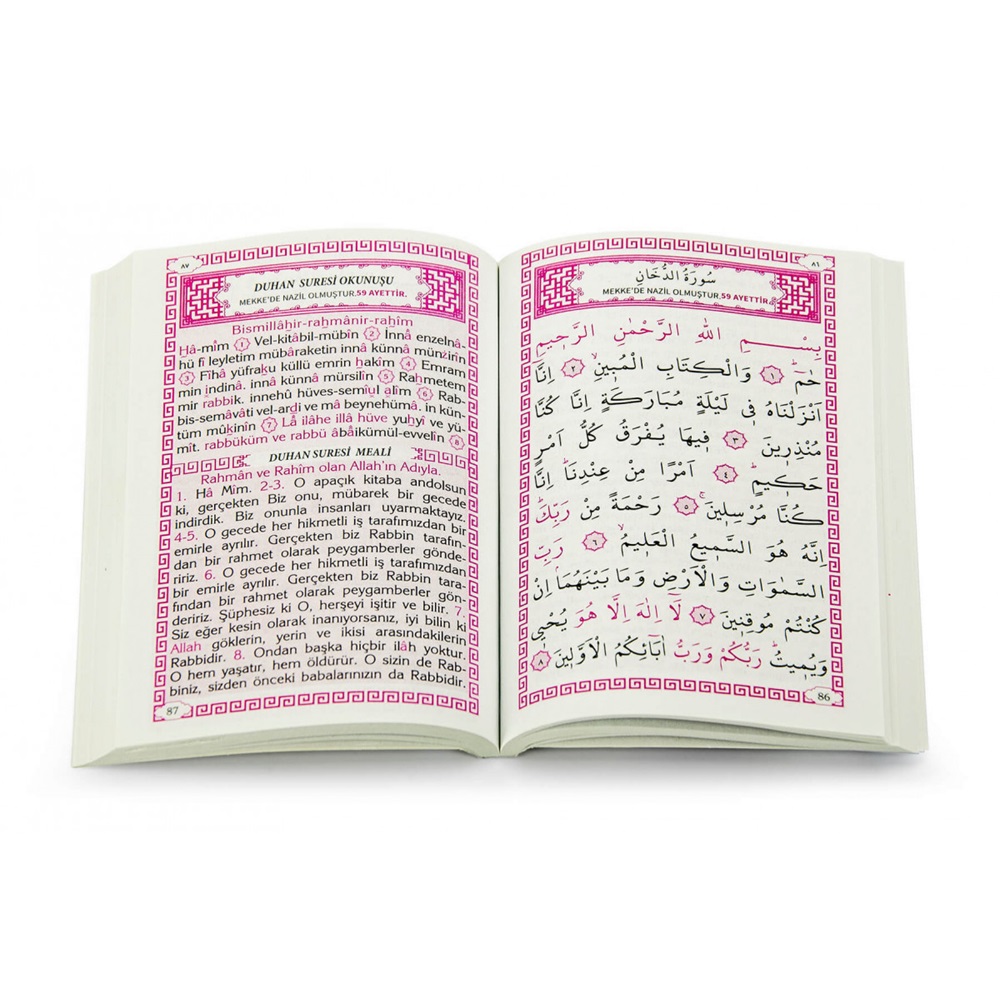 ٨٧
DUHAN SURESİ OKUNUŞU
MEKKE'DE NAZİL OLMUŞTUR.59 AYETTİR.
Bismillâhir-rahmânir-rahîm
Hâ-mîm 1 Vel-kitâbil-mübîn 2 İnnâ enzelnâ-
hü fî leyletim mübâraketin innâ künnâ münzirîn
3 Fîhâ yüfraku küllü emrin hakîm 4 Emram
min indinâ. innâ künnâ mürsilîn 5 Rahmetem
mir rabbik. innehû hüves-semîul alîm 6 Rab-
bis-semâvâti vel-ardi ve mâ beynehümâ. in kün-
tüm mûkinîn 7 Lâ ilâhe illâ hüve yuhyî ve yü-
mît. rabbüküm ve rabbü âbâikümül-evvelîn 8
DUHAN SURESİ MEALİ
Rahmân ve Rahîm olan Allah'ın Adıyla.
1. Hâ Mîm. 2-3. O apaçık kitaba andolsun
ki, gerçekten Biz onu, mübarek bir gecede
indirdik. Biz onunla insanları uyarmaktayız.
4-5. O gecede her hikmetli iş tarafımızdan bir
emirle ayrılır. Gerçekten biz Rabbin tarafın-
dan bir rahmet olarak peygamberler gönde-
ririz. 6. O gecede her hikmetli iş tarafımızdan
bir emirle ayrılır. Gerçekten biz Rabbin tara-
fından bir rahmet olarak peygamberler gön-
deririz. Şüphesiz ki O, herşeyi işitir ve bilir. 7.
Siz eğer kesin olarak inanıyorsanız, iyi bilin ki
Allah göklerin, yerin ve ikisi arasındakilerin
Rabbidir. 8. Ondan başka hiçbir ilâh yoktur.
O hem yaşatır, hem öldürür. O sizin de Rab-
biniz, sizden önceki babalarınızın da Rabbidir.
87
٨٦
سُورَةُ الدُّخَانِ
MEKKE'DE NAZİL OLMUŞTUR.59 AYETTİR.
بِسْــــمِ اللّٰهِ الرَّحْمٰنِ الرَّحِيمِ
حٰمٓۜ ﴿١﴾ وَالْكِتَابِ الْمُبِينِۙ ﴿٢﴾ اِنَّٓا
اَنْزَلْنَاهُ فِي لَيْلَةٍ مُبَارَكَةٍ اِنَّا كُنَّا
مُنْذِرِينَ ﴿٣﴾ فِيهَا يُفْرَقُ كُلُّ اَمْرٍ
حَكِيمٍۙ ﴿٤﴾ اَمْرًا مِنْ عِنْدِنَاۜ اِنَّا
كُنَّا مُرْسِلِينَۚ ﴿٥﴾ رَحْمَةً مِنْ رَبِّكَۜ
اِنَّهُ هُوَ السَّمِيعُ الْعَلِيمُۙ ﴿٦﴾ رَبِّ
السَّمٰوَاتِ وَالْاَرْضِ وَمَا بَيْنَهُمَاۢ اِنْ
كُنْتُمْ مُوقِنِينَ ﴿٧﴾ لَٓا اِلٰهَ اِلَّا هُوَ يُحْيِي
وَيُمِيتُۜ رَبُّكُمْ وَرَبُّ اٰبَٓائِكُمُ الْاَوَّلِينَ ﴿٨﴾
86